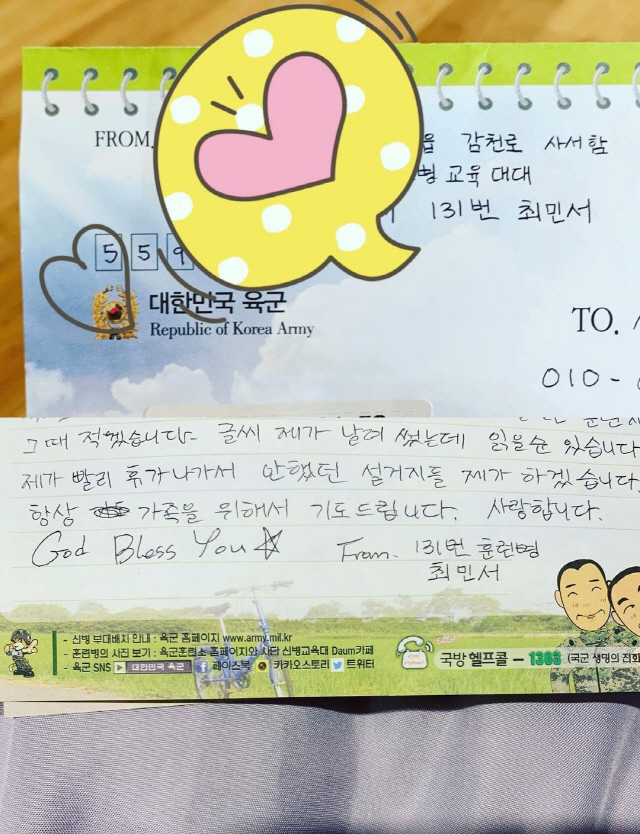 FROM.
감천로 사서함
교육대대
131번 최민서
5 5 9
대한민국 육군
Republic of Korea Army
TO.
010-
그때 적겠습니다- 글씨 제가 날려 썼는데 읽을순 있습니다
제가 빨리 휴가나가서 안했던 설거지들 제가 하겠습니다.
항상 가족을 위해서 기도드립니다. 사랑합니다.
God Bless You
From. 131번 훈련병
최민서
- 신병 부대배치 안내 : 육군 홈페이지 www.army.mil.kr
- 훈련병의 사진 보기 : 육군훈련소 홈페이지와 사단 신병교육대 Daum카페
- 육군 SNS 대한민국 육군 페이스북 카카오스토리 트위터
국방헬프콜 - 1303 (국군 생명의 전화